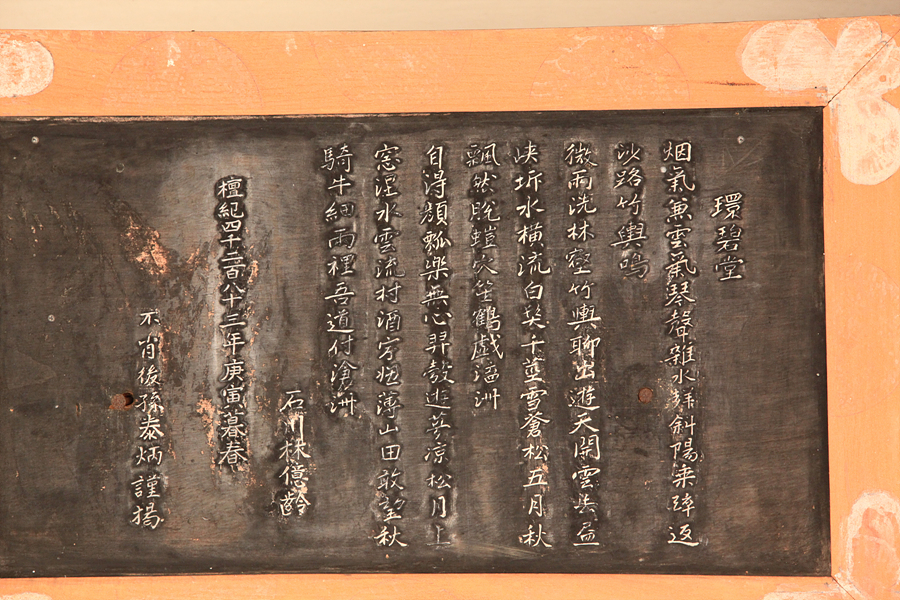 環碧堂
烟氣兼雲氣琴聲雜水聲斜陽乘醉返
沙路竹輿鳴
微雨洗林壑竹輿聊出遊天開雲去盡
峽坼水橫流白髮千莖雪蒼松五月秋
飄然脫螘穴笙鶴戲瀛洲
自得顔瓢樂無心羿彀遊夢凉松月上
窓湿水雲流村酒宁嫌薄山田敢望秋
騎牛細雨裡吾道付滄洲
石川林億齡
檀紀四千二百八十三年庚寅暮春
不肖後孫泰炳謹揭